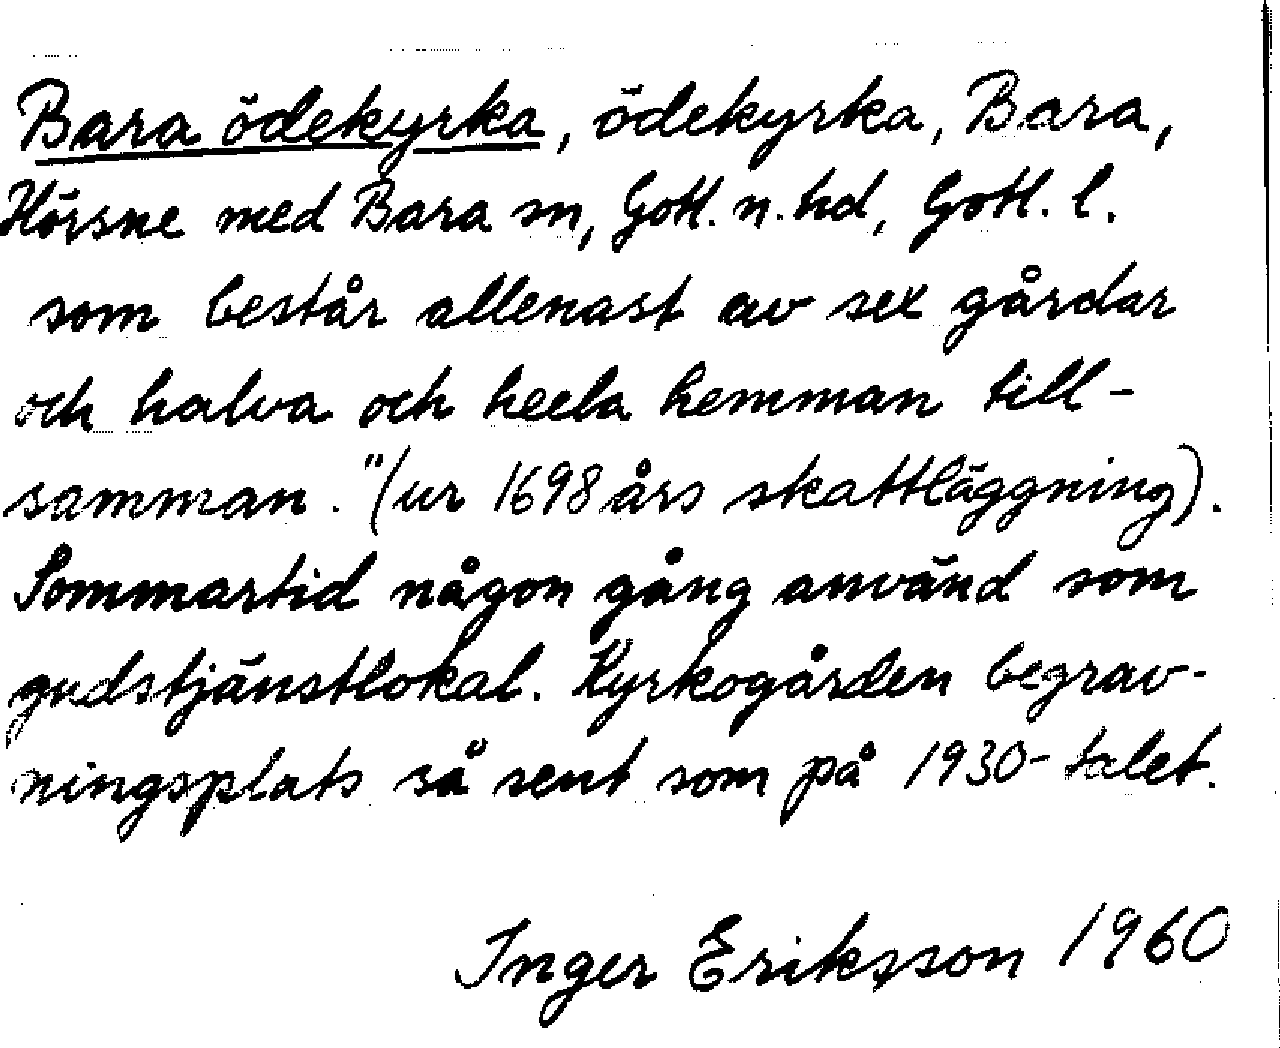 Bara ödekyrka, ödekyrka, Bara,
Hörsne med Bara sn, Gotl. n. hd, Gotl. l.
som består allenast av sex gårdar
och halva och heela hemman till-
samman." (ur 1698 års skattläggning).
Sommartid någon gång använd som
gudstjänstlokal. Kyrkogården begrav-
ningsplats så sent som på 1930-talet.
Inger Eriksson 1960